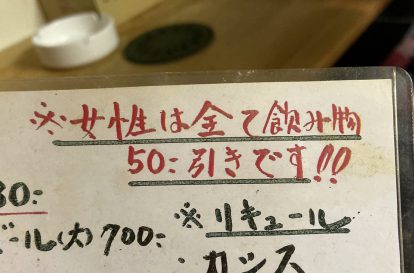 ※女性は全て飲み物
50:引きです!!
80:
ール(大)700:
※リキュール
カシス